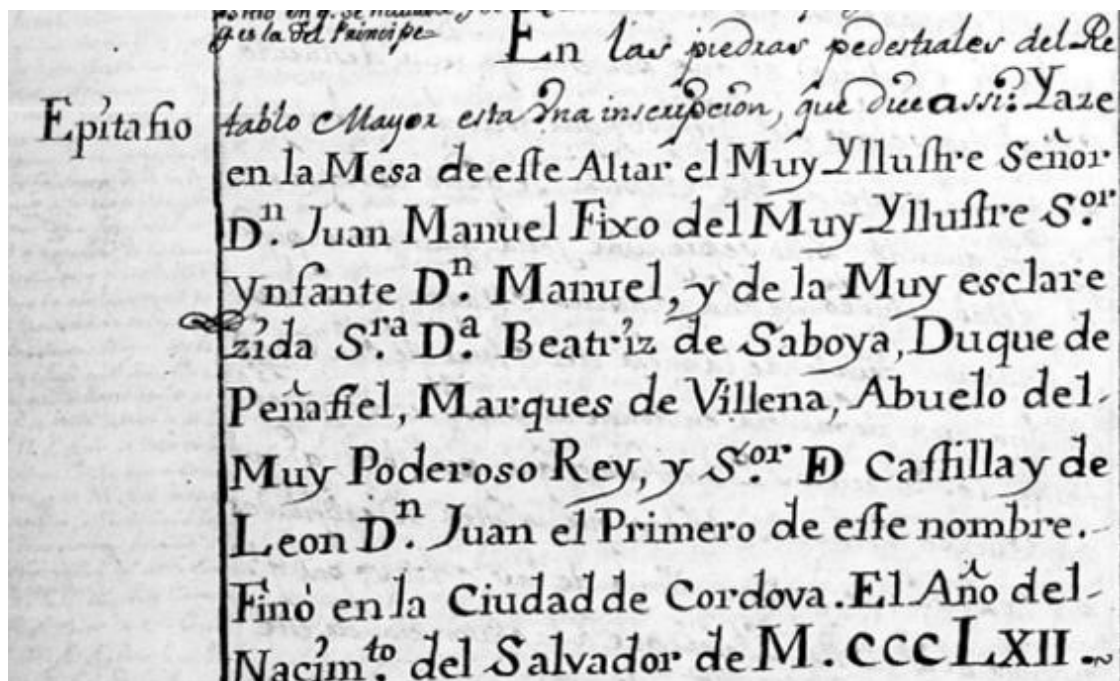 q̃ es la del Principe
En las piedras pedestrales del Re
Epitafio
tablo Mayor esta vna inscripcion, que dice assi: Yaze
en la Mesa de eſte Altar el Muy Ylluſtre Señor
D.ⁿ Juan Manuel Fixo del Muy Ylluſtre S.ᵒʳ
Ynfante D.ⁿ Manuel, y de la Muy esclare
zida S.ʳᵃ D.ᵃ Beatriz de Saboya, Duque de
Peñafiel, Marques de Villena, Abuelo del
Muy Poderoso Rey, y S.ᵒʳ D Caſtilla y de
Leon D.ⁿ Juan el Primero de eſte nombre.
Finò en la Ciudad de Cordova. El Año del
Nacim.ᵗᵒ del Salvador de M. CCCLXII.